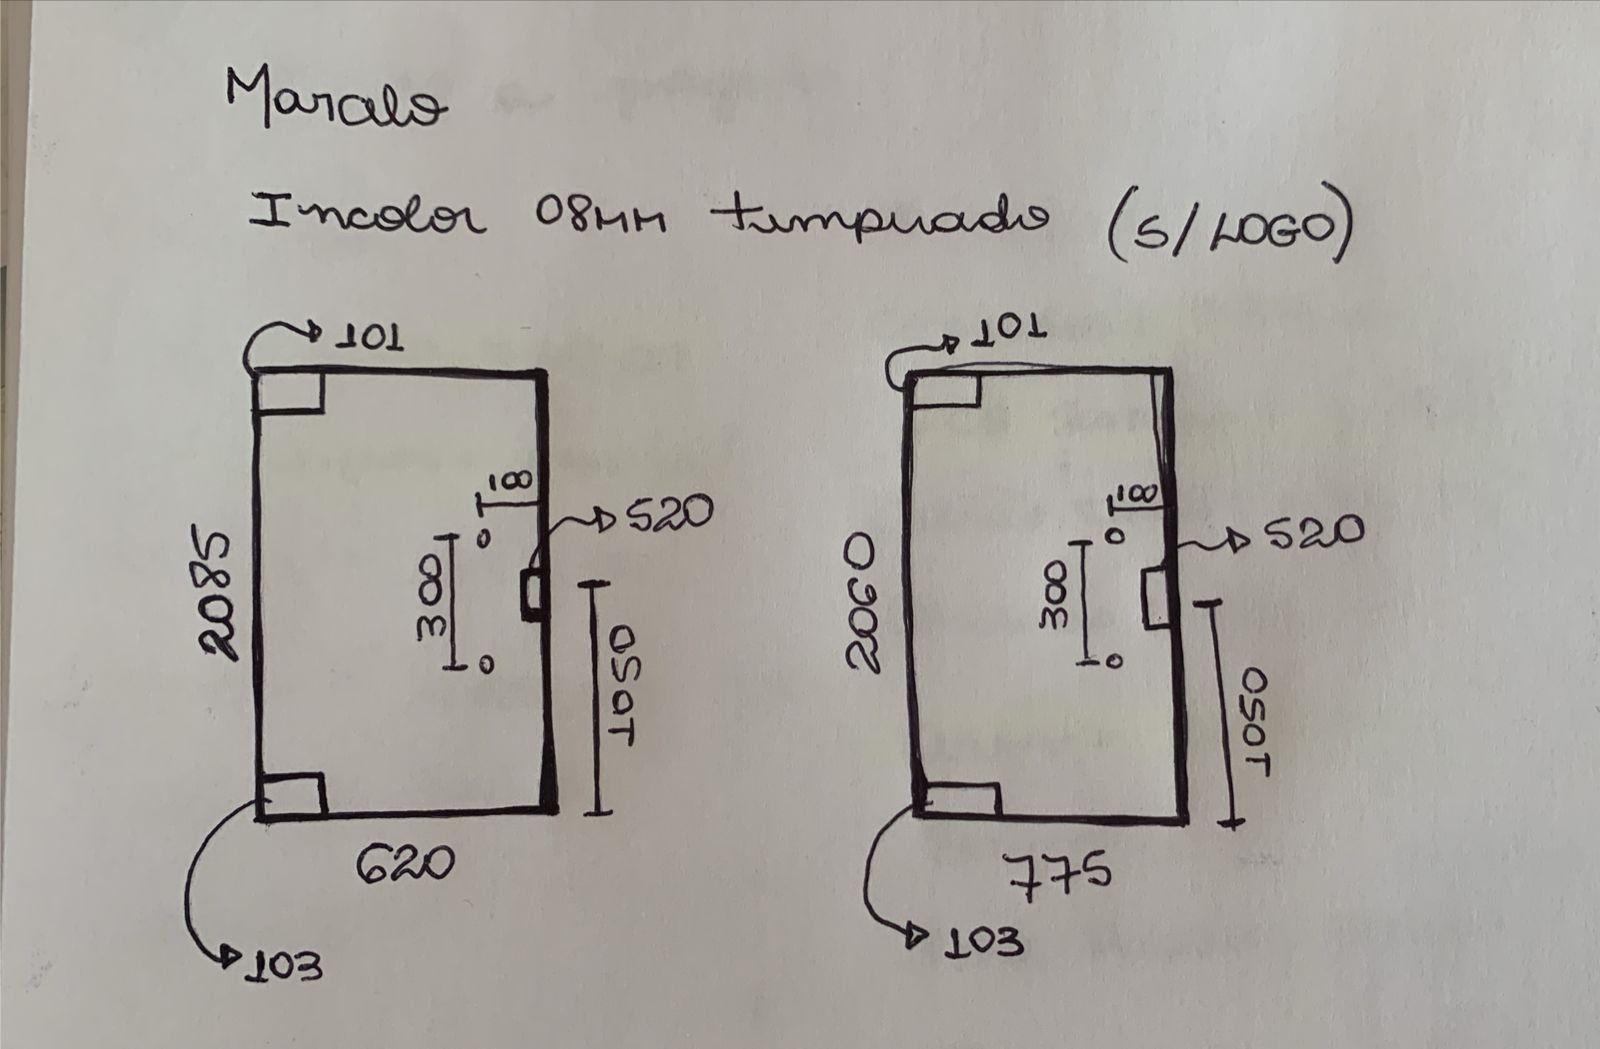 Maralo
Incolor 08MM temperado (S/LOGO)
101
101
18
18
520
520
2085
300
1050
2060
300
1050
620
775
103
103